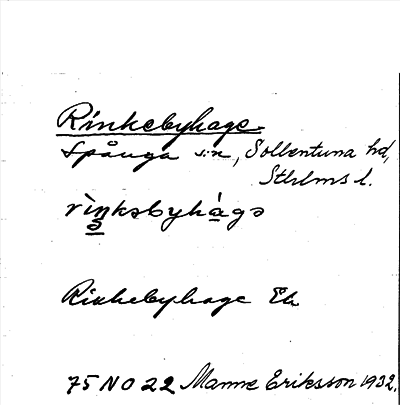 Rinkebyhage.
Spånga s:n, Sollentuna hd,
Sthlms l.
rìŋkəbyhàgə
Rinkebyhage Ek
75 NO 22 Manne Eriksson 1932.